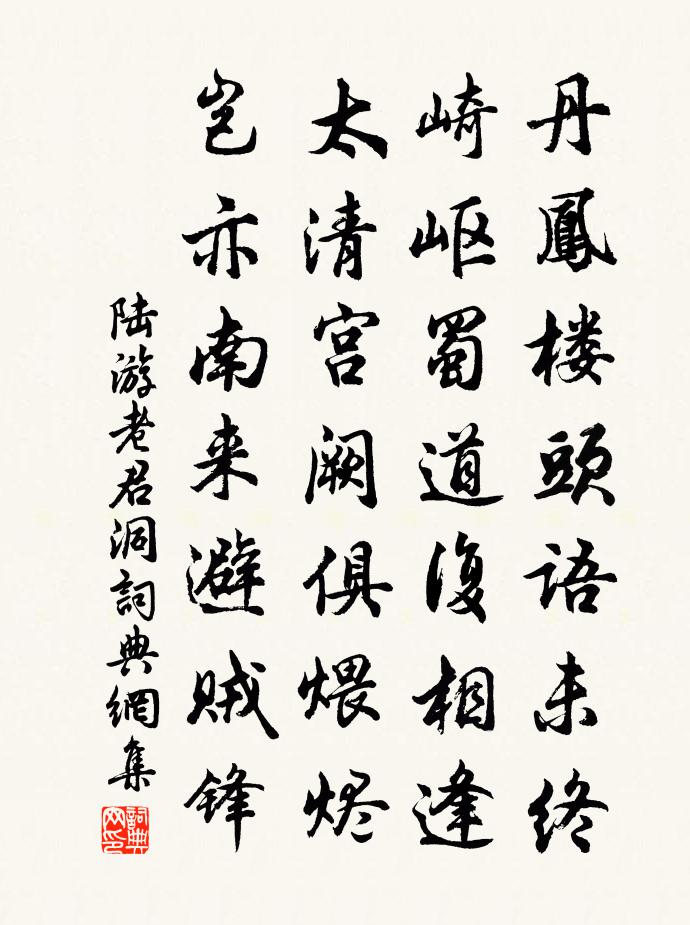 丹鳳楼頭語未終
崎岖蜀道復相逢
太清宫阙俱煨烬
岂亦南来避贼锋
陆游老君洞詞典網集
詞典
网印